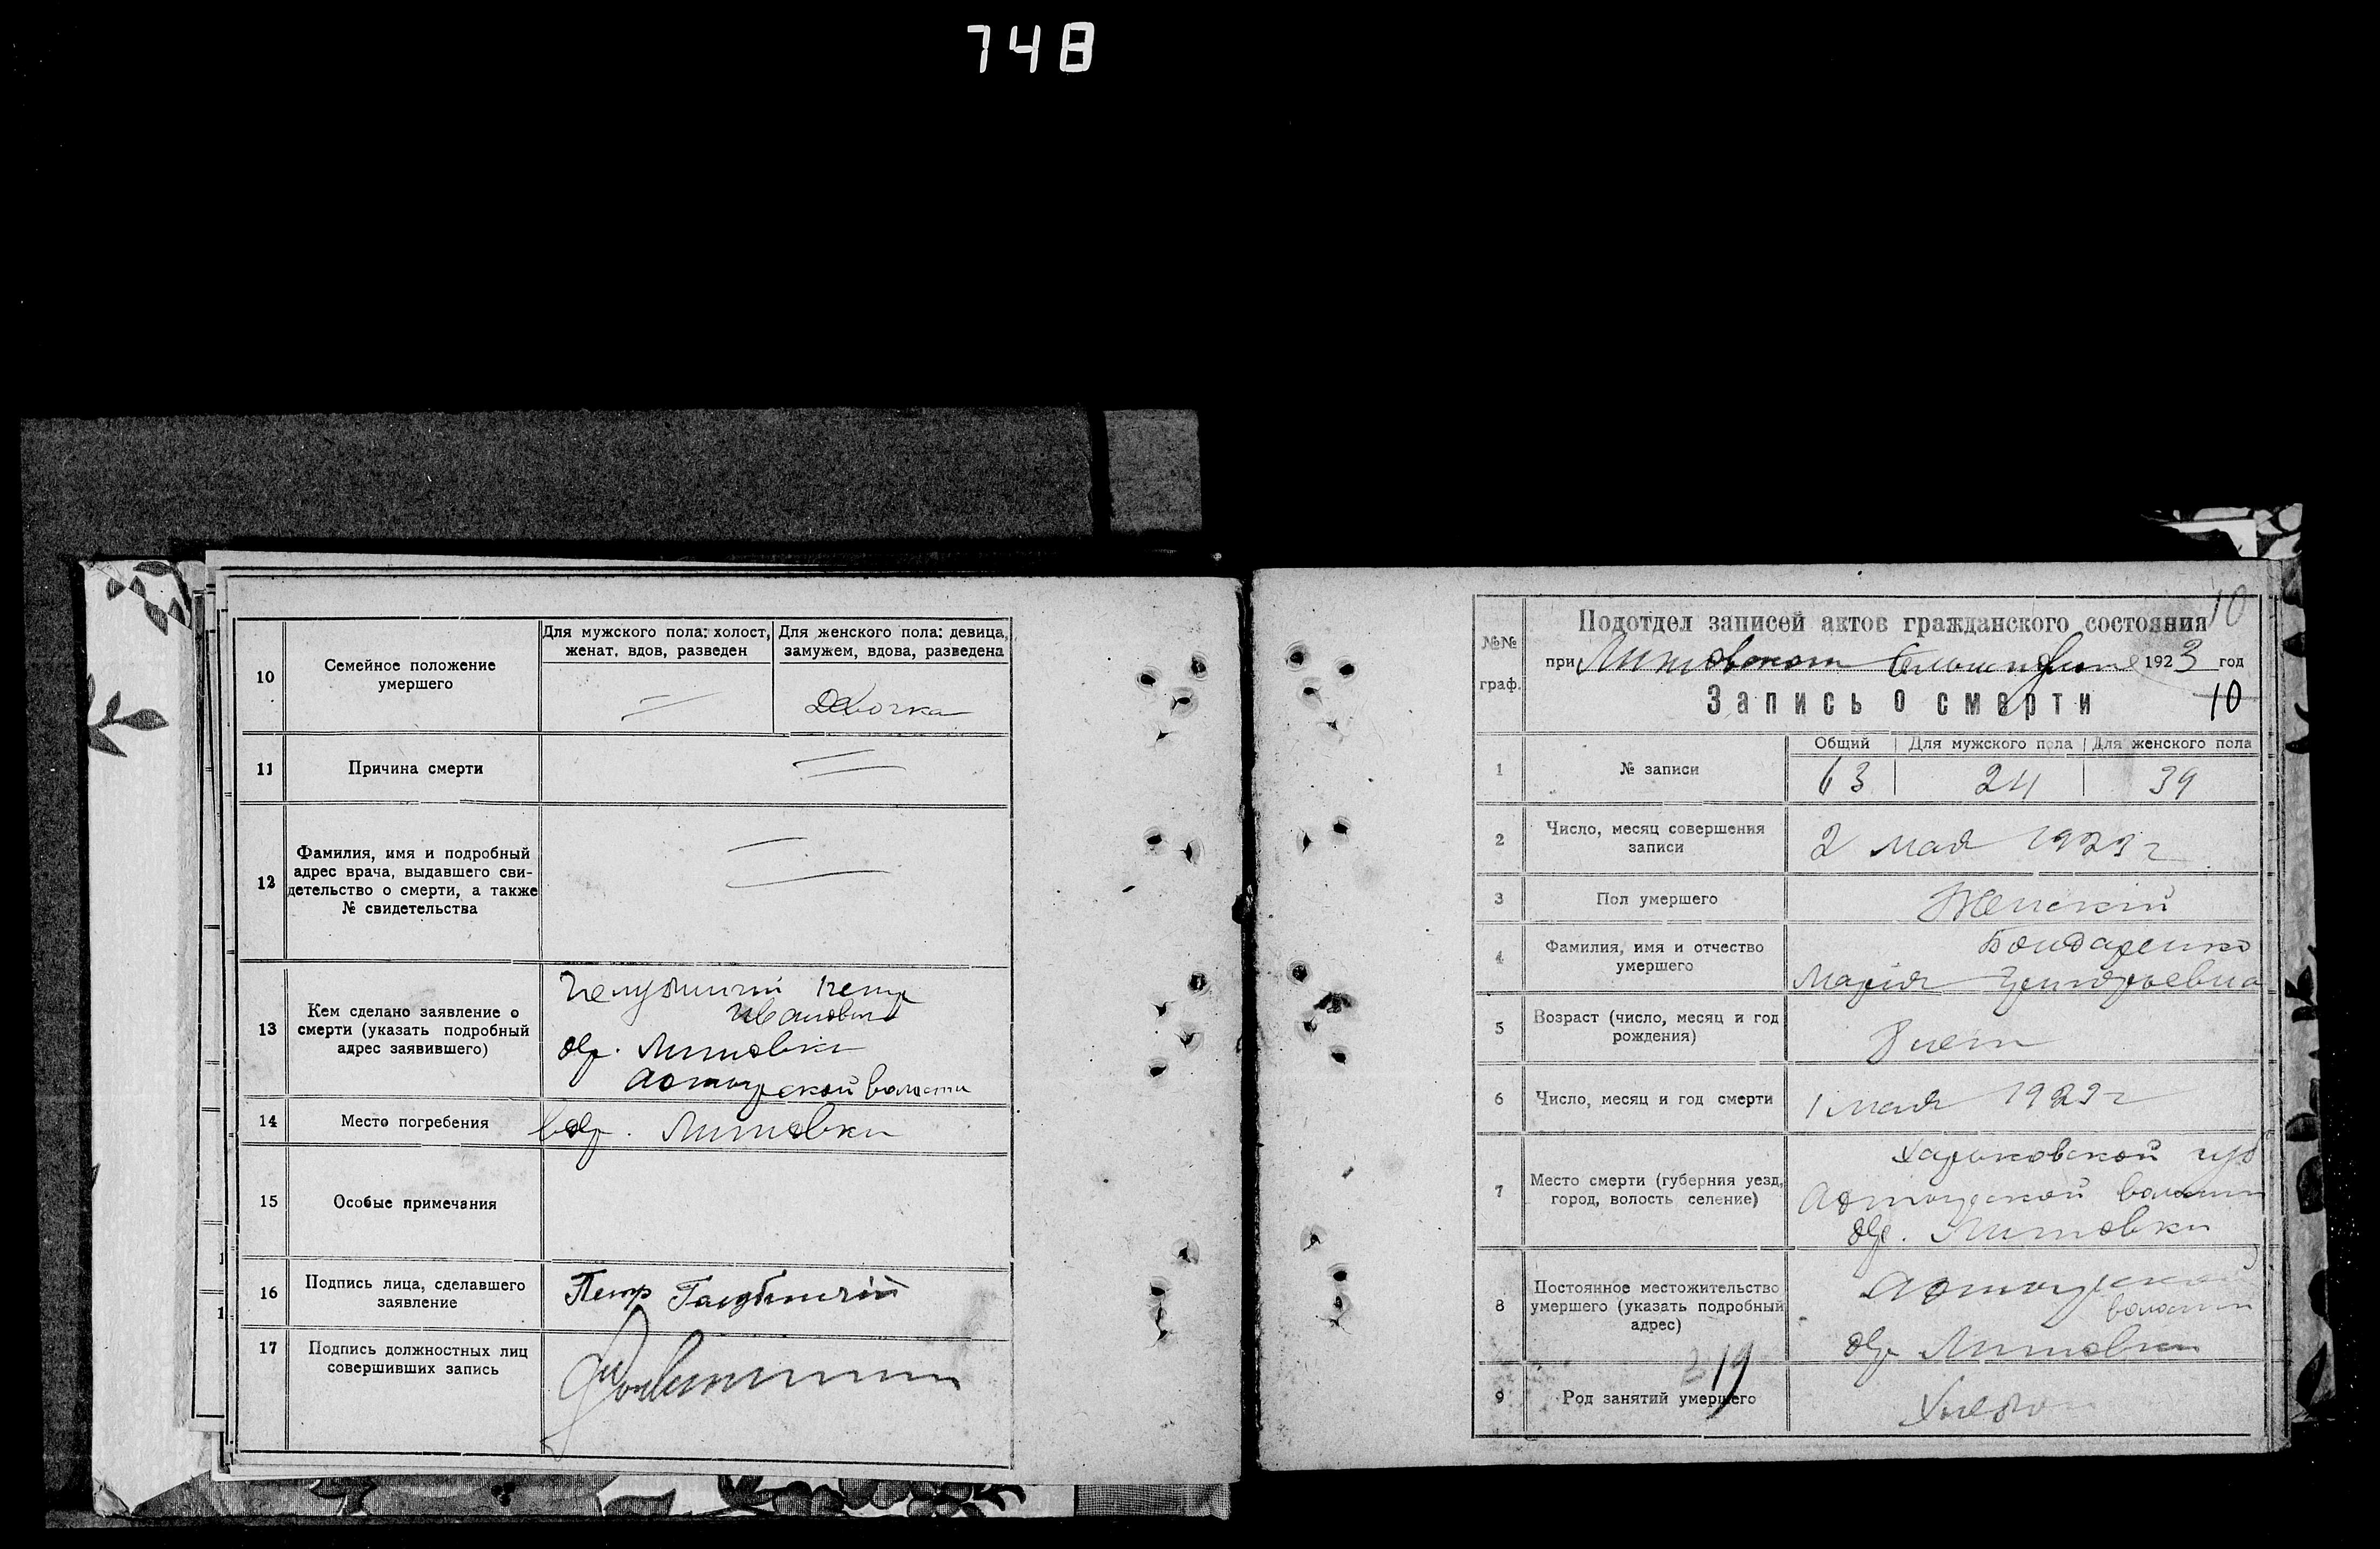 748
10
Семейное положение
умершего
Для мужского пола: холост,
женат, вдов, разведен
Для женского пола: девица,
замужем, вдова, разведена
Девочка
11
Причина смерти
12
Фамилия, имя и подробный
адрес врача, выдавшего сви-
детельство о смерти, а также
№ свидетельства
13
Кем сделано заявление о
смерти (указать подробный
адрес заявившего)
Петр
Иванович
дер. Литовки
Ахтырской волости
14
Место погребения
в дер. Литовки
15
Особые примечания
16
Подпись лица, сделавшего
заявление
Петр
17
Подпись должностных лиц
совершивших запись
10
№№
граф.
Подотдел записей актов гражданского состояния
при Литовском 1923 год
Запись о смерти
10
1
№ записи
Общий
Для мужского пола
Для женского пола
63
24
39
2
Число, месяц совершения
записи
2 мая 1923 г
3
Пол умершего
Женский
4
Фамилия, имя и отчество
умершего
Бондаренко
Мария Григорьевна
5
Возраст (число, месяц и год
рождения)
8 лет
6
Число, месяц и год смерти
1 мая 1923 г
7
Место смерти (губерния уезд,
город, волость селение)
Харьковской губ
Ахтырской волости
дер. Литовки
8
Постоянное местожительство
умершего (указать подробный
адрес)
Ахтырской
волости
дер Литовки
219
9
Род занятий умершего